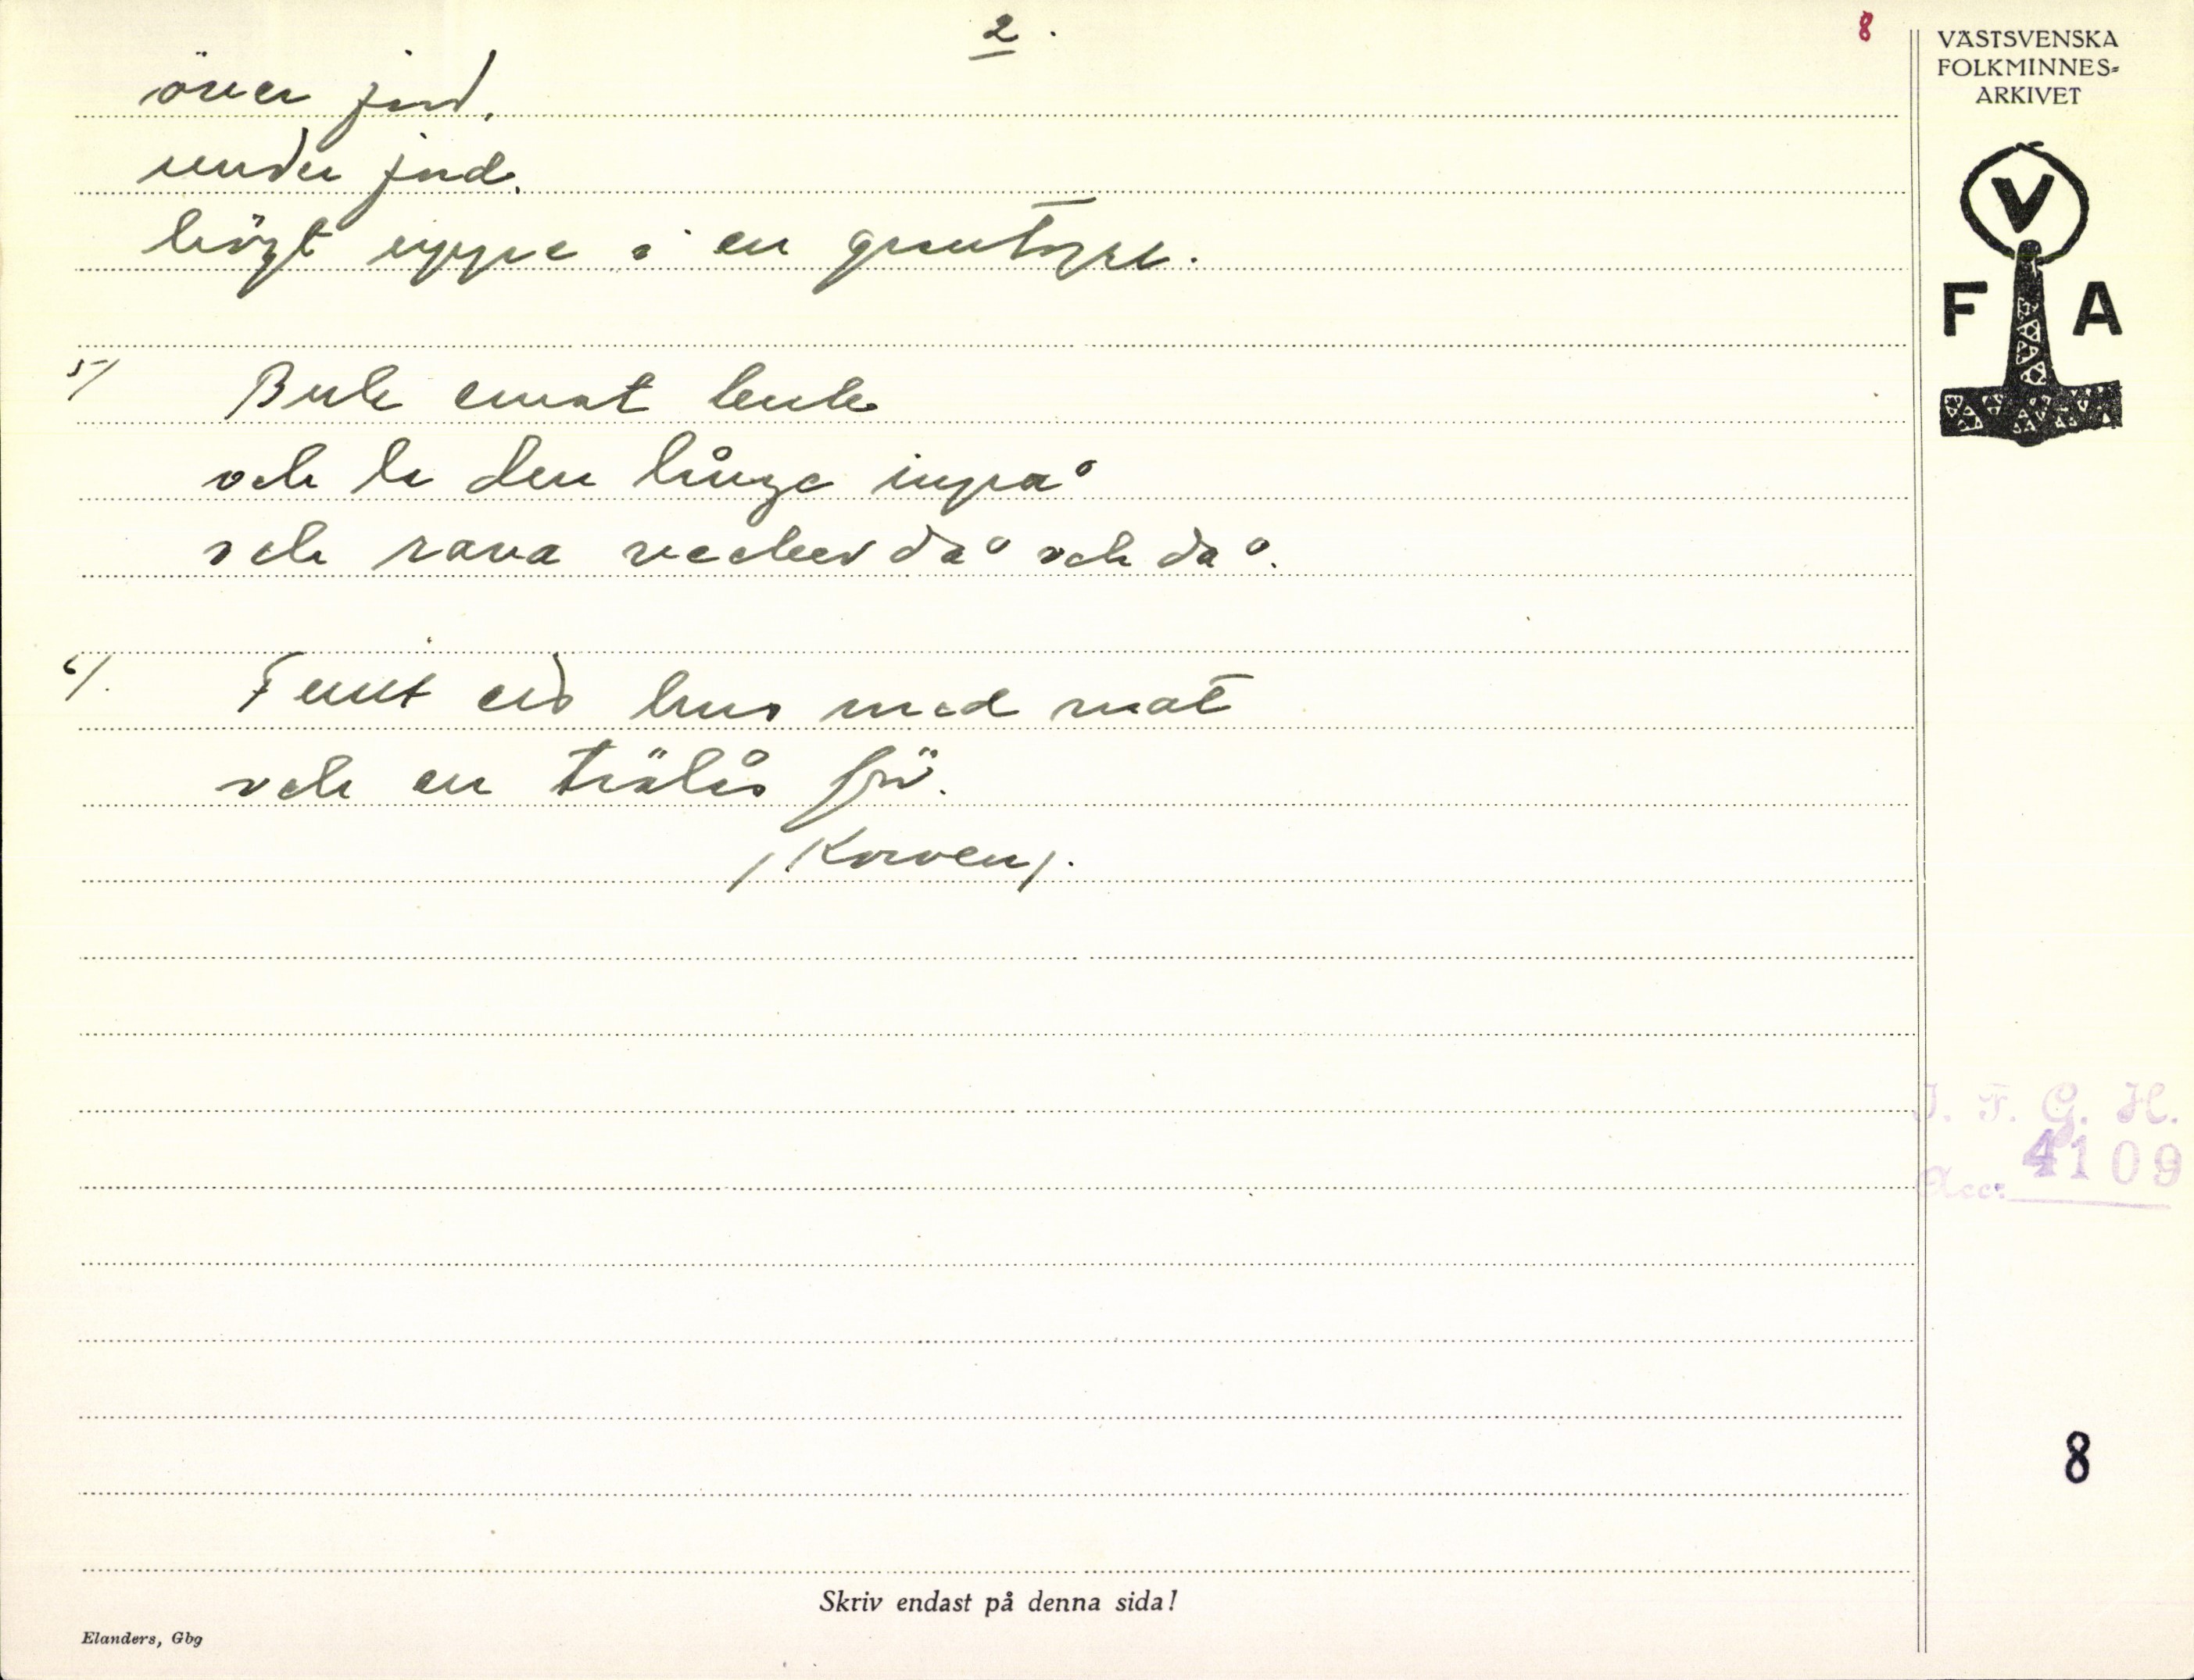 2.
8
över jord,
under jord.
högt uppe i en grantopp.
5/ Buk emot buk
och le den långe inpå
och rava då och då.
6/. Femt eid hus med mat
och en trälås för.
/Korven/.
VÄSTSVENSKA
FOLKMINNES-
ARKIVET
V
F A
I. F. G. H.
Acc: 4109
8
Skriv endast på denna sida!
Elanders, Gbg